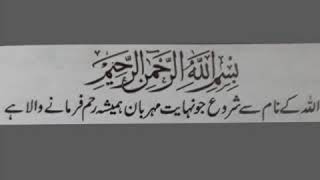 بِسْمِ اللّٰهِ الرَّحْمٰنِ الرَّحِيْمِ
اللہ کے نام سے شروع جو نہایت مہربان ہمیشہ رحم فرمانے والا ہے